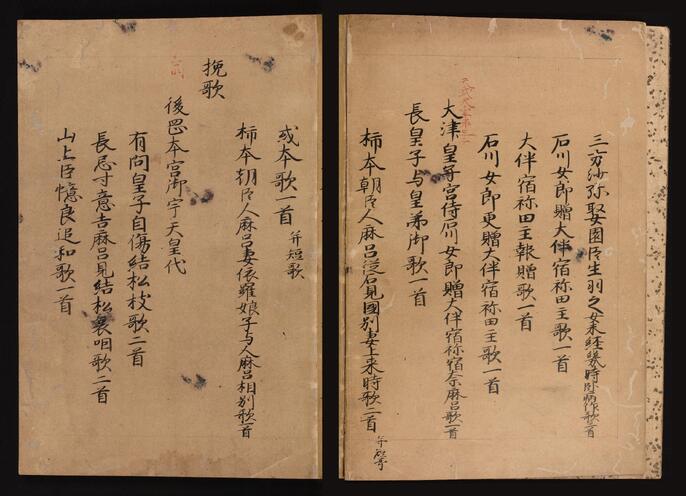 三方沙弥娶園臣生羽之女未経幾時臥病作歌三首
石川女郎贈大伴宿祢田主歌一首
大伴宿祢田主報贈歌一首
石川女郎更贈大伴宿祢田主歌一首
大津皇子宮侍石川女郎贈大伴宿祢宿奈麻呂歌一首
長皇子与皇弟御歌一首
柿本朝臣人麻呂従石見國別妻上来時歌二首 并短哥
或本歌一首 并短歌
柿本朝臣人麻呂妻依羅娘子与人麻呂相別歌一首
挽歌
後岡本宮御宇天皇代
有間皇子自傷結松枝歌二首
長忌寸意吉麻呂見結松哀咽歌二首
山上臣憶良追和歌一首